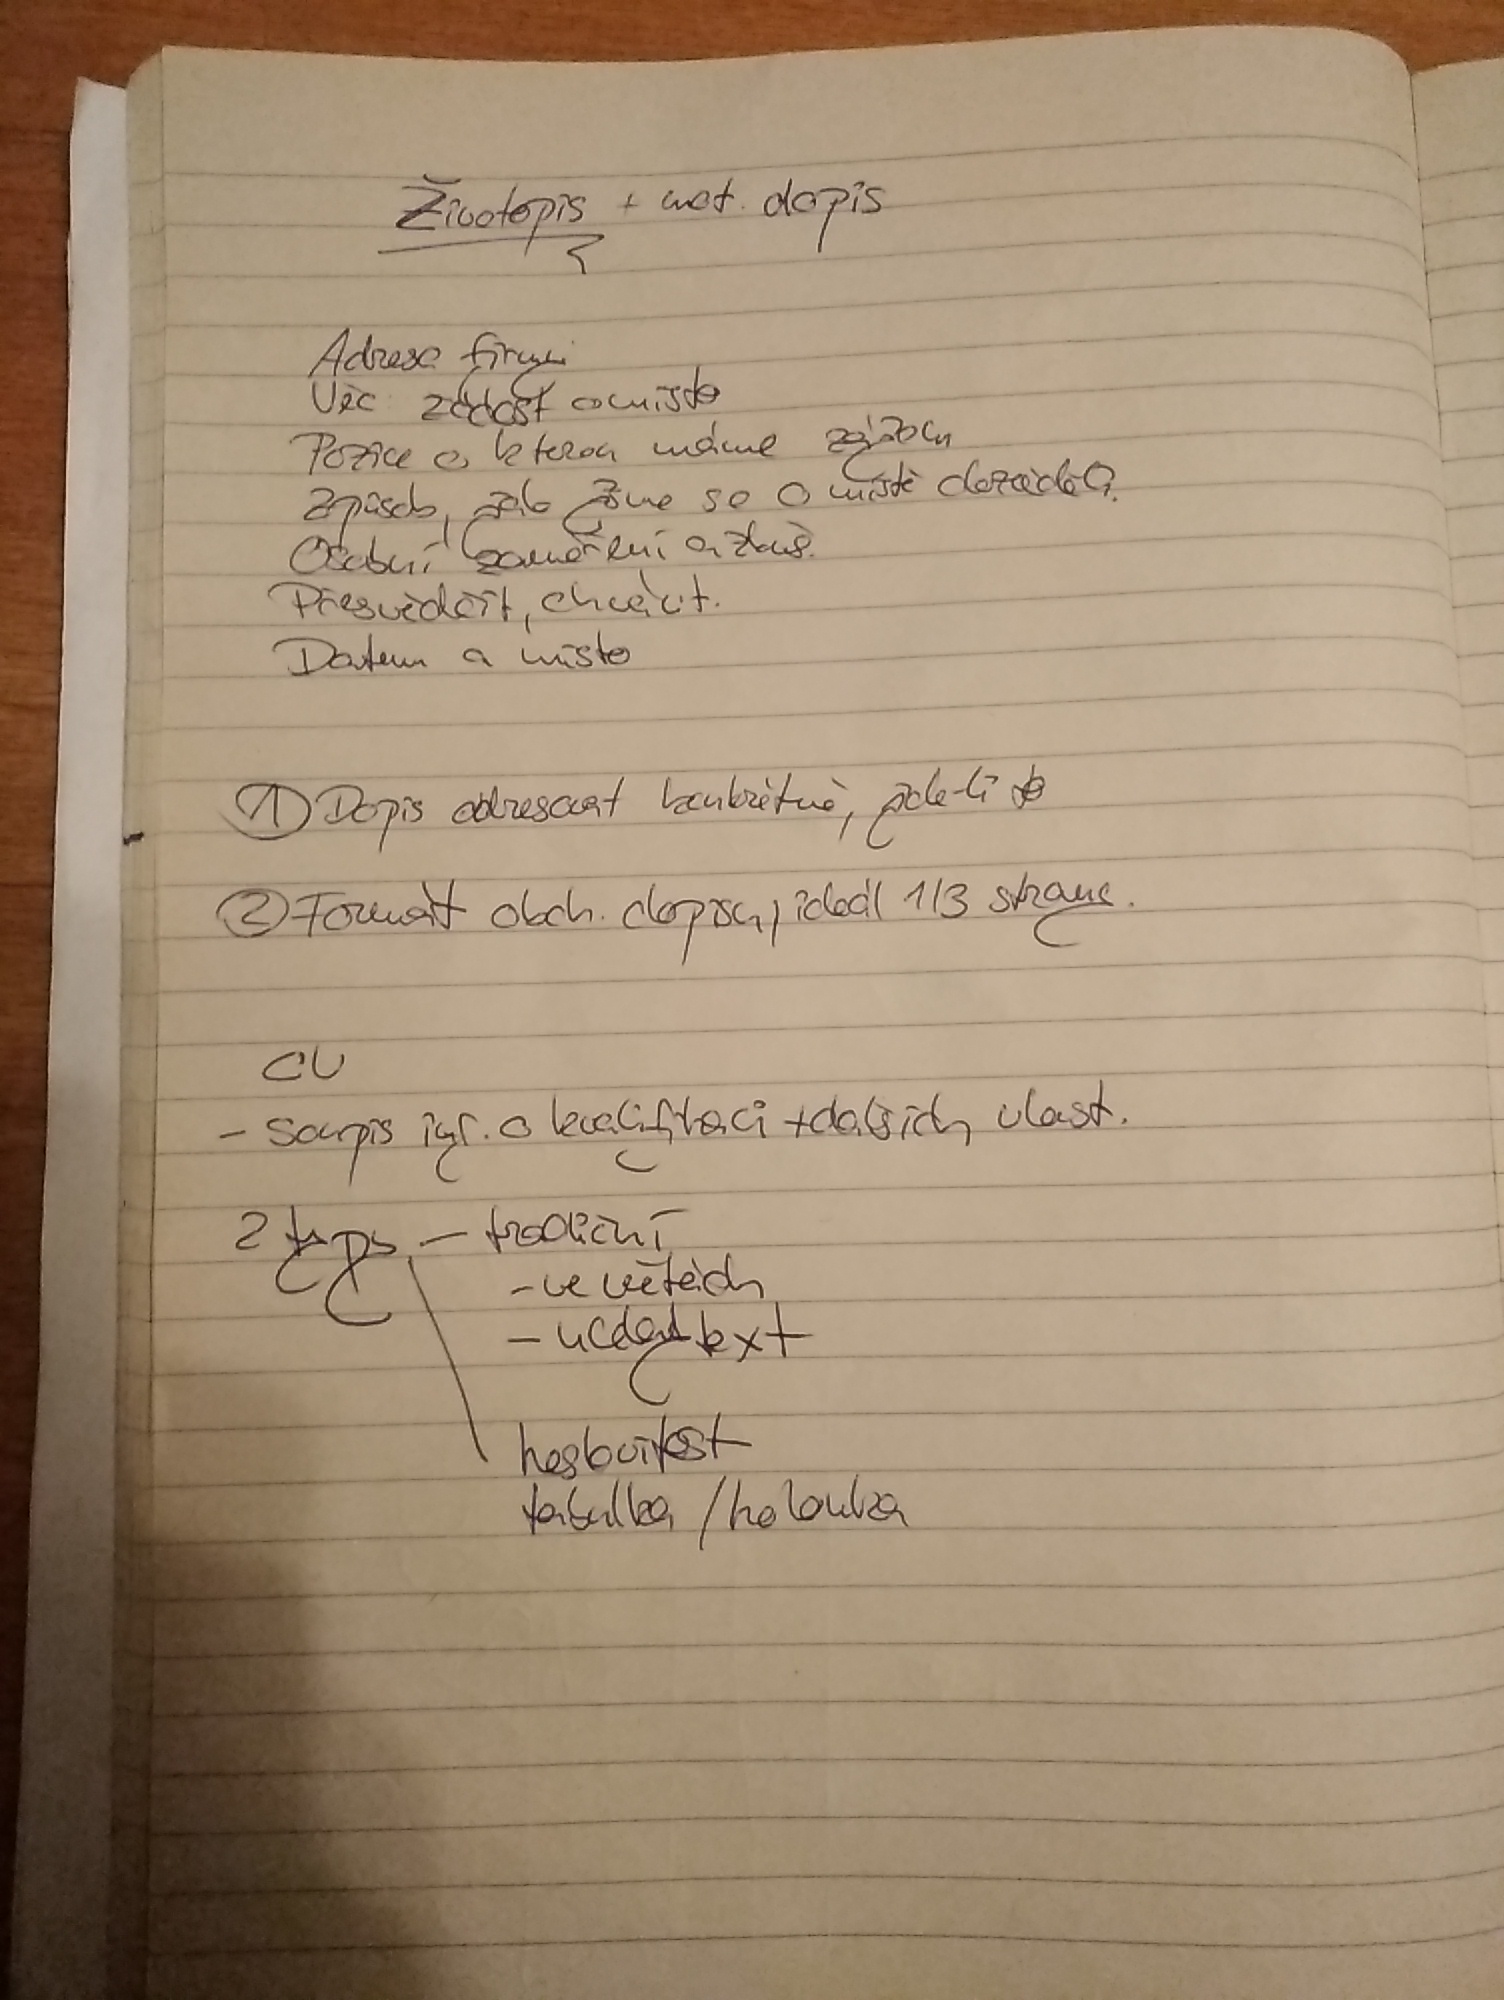 Životopis + mot. dopis
Adresa firmy
Věc: žádost o místo
Pozice o kterou máme zájem
způsob, jak jsme se o místě dozvěděli
Osobní zaměření a
Přesvědčit, chválit.
Datum a místo
① Dopis adresovat konkrétně, jde-li to
② Formát obch. dopisu, ideál 1/3 strany.
CV
- Soupis inf. o kvalifikaci + dalších vlast.
2 typy - tradiční
- ve větách
- ucelený text
heslovitost
tabulka / kolonka